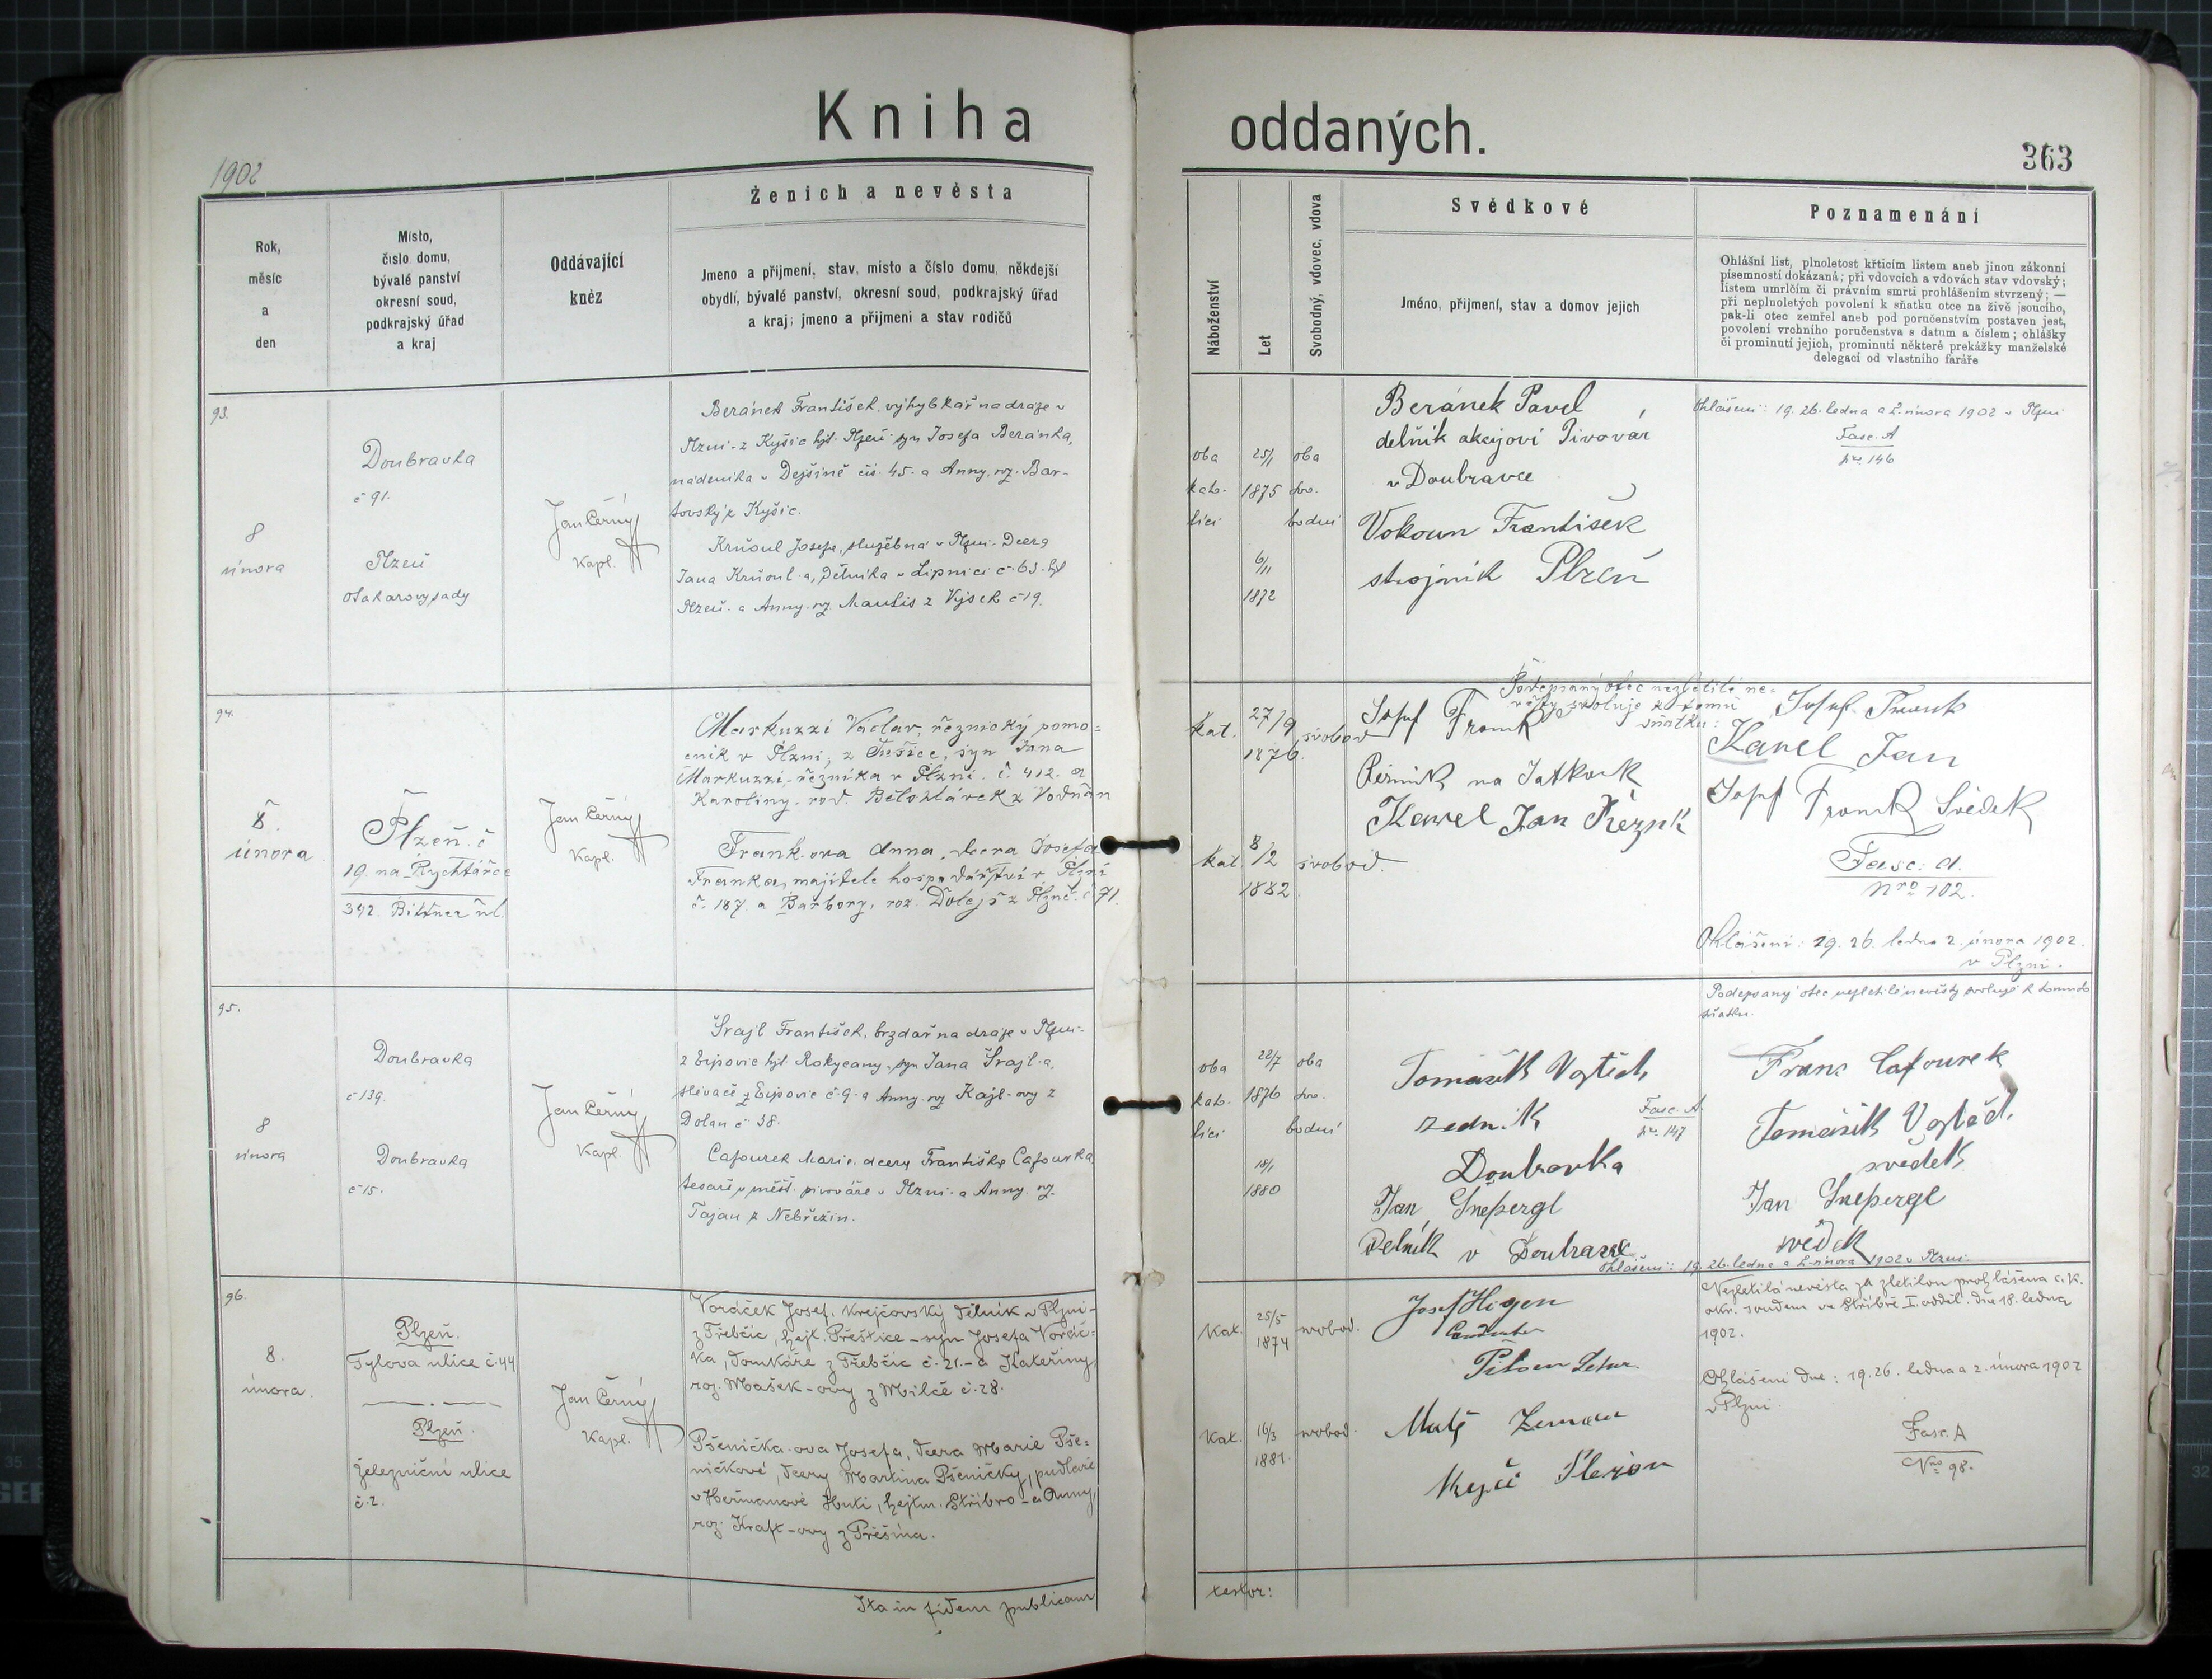 Kniha oddaných.
1902
363
Ženich a nevěsta
Svědkové
Poznamenání
Rok,
měsíc
a
den
Místo,
číslo domu,
bývalé panství
okresní soud,
podkrajský úřad
a kraj
Oddávající
kněz
Jmeno a přijmení, stav, místo a číslo domu, někdejší
obydlí, bývalé panství, okresní soud, podkrajský úřad
a kraj; jmeno a přijmení a stav rodičů
Náboženství
Let
Svobodný, vdovec, vdova
Jméno, přijmení, stav a domov jejich
Ohlášní list, plnoletost křticím listem aneb jinou zákonní
písemností dokázaná; při vdovcích a vdovách stav vdovský;
listem umrlčím či právním smrti prohlášením stvrzený; —
při neplnoletých povolení k sňatku otce na živě jsoucího,
pak-li otec zemřel aneb pod poručenstvím postaven jest,
povolení vrchního poručenstva s datum a číslem; ohlášky
či prominutí jejich, prominutí některé prekážky manželské
delegací od vlastního faráře
93.
8
února
Doubravka
č 91.
Plzeň
Otakarovy sady
Jan Černý
Kapl.
Beránek František, výhybkář na dráze v
Plzni - z Kyšic hjt. Plzeň - syn Josefa Beránka,
nádeníka v Dejšině čís. 45. a Anny, roz. Bar-
tovský z Kyšic.
Krňoul Josefa, služebná v Plzni - Dcera
Jana Krňoul-a, dělníka v Lipnici č 63. hjt
Plzeň - a Anny roz. Mautis z Výsek č 19.
oba
kato-
líci
25/1
1875
6/11
1872
oba
svo-
bodní
Beránek Pavel
delník akcijoví Pivovár
v Doubravce
Vokoun František
strojník Plzeň
Ohlášeni: 19. 26. ledna a 2. února 1902 v Plzni
Fasc. A
Nro 146
94.
8.
února
Plzeň. č
19. na Rychtářce
392. Bittner úl.
Jan Černý
Kapl.
Markuzzi Václav, řeznický pomo=
cník v Plzni, z Sušice, syn Jana
Markuzzi, řezníka v Plzni č. 412. a
Karoliny, rod. Bělohlávek z Vodňan
Frank-ova Anna, dcera Josefa
Franka, majitele hospodářství v Plzni
č. 187. a Barbory, roz. Dolejš z Plzně č 71.
kat.
27/9
1876.
svobod
kat.
8/2
1882
svobod.
Josef Frank
Řezník na Jatkack
Kawel Jan Řezník
Podepsaný otec nezletilé ne=
věsty svoluje k tomu
sňatku:
Josef Frank
Kawel Jan
Josef Frank Svědek
Fasc: A.
Nro 102.
Ohlášeni: 19. 26. ledna 2. února 1902.
v Plzni.
95.
8
února
Doubravka
č 139.
Doubravka
č 15.
Jan Černý
Kapl.
Šrajl František, brzdař na dráze v Plzni-
z Ejpovic hjt Rokycany, syn Jana Šrajl-a,
slévače z Ejpovic č. 9. a Anny roz Kájl-ovy z
Dolan č 38.
Cafourek Marie, dcera Františka Cafourka
tesaře v měšť. pivováře v Plzni - a Anny roz.
Tajan z Nebřezin.
oba
kato-
líci
22/7
1876
18/1
1880
oba
svo-
bodní
Tomašik Vojtěch
zedník
Doubravka
Jan Šnepergl
Delník v Doubravce
Fasc. A.
Nro 147
Podepsaný otec nezletilé nevěsty svoluje k tomuto
sňatku.
Franc Cafourek
Tomášik Vojtěch
svedek
Jan Šnepergl
svědek
Ohlášeni: 19. 26. ledna a 2. února 1902 v Plzni.
96.
8.
února.
Plzeň.
Tylova ulice č. 44
Plzeň.
Železniční ulice
č. 2.
Jan Černý
Kapl.
Voráček Josef, krejčovský dělník v Plzni-
z Třebčic, hejt. Přeštice - syn Josefa Voráč-
ka, domkáře z Třebčic č. 21. - a Kateřiny,
roz. Mašek-ovy z Milče č. 28.
Pšenička-ova Josefa, dcera Marie Pše=
ničkové, dcery Martina Pšeničky, pudláře
v Heřmanově Huti, hejtm. Stříbro - a Anny,
roz. Kraft-ovy z Přešína.
Kat.
25/5
1874
svobod.
Kat.
16/3
1881.
svobod.
Josef Higen
Matěj Zeman
Krejčí
Nezletilá nevěsta za zletilou prohlášena c. k.
okr. soudem ve Stříbře I. odděl. dne 18. ledna
1902.
Ohlášeni dne: 19. 26. ledna a 2. února 1902
v Plzni.
Fasc. A
Nro 98.
Ita in fidem publicam
testor: